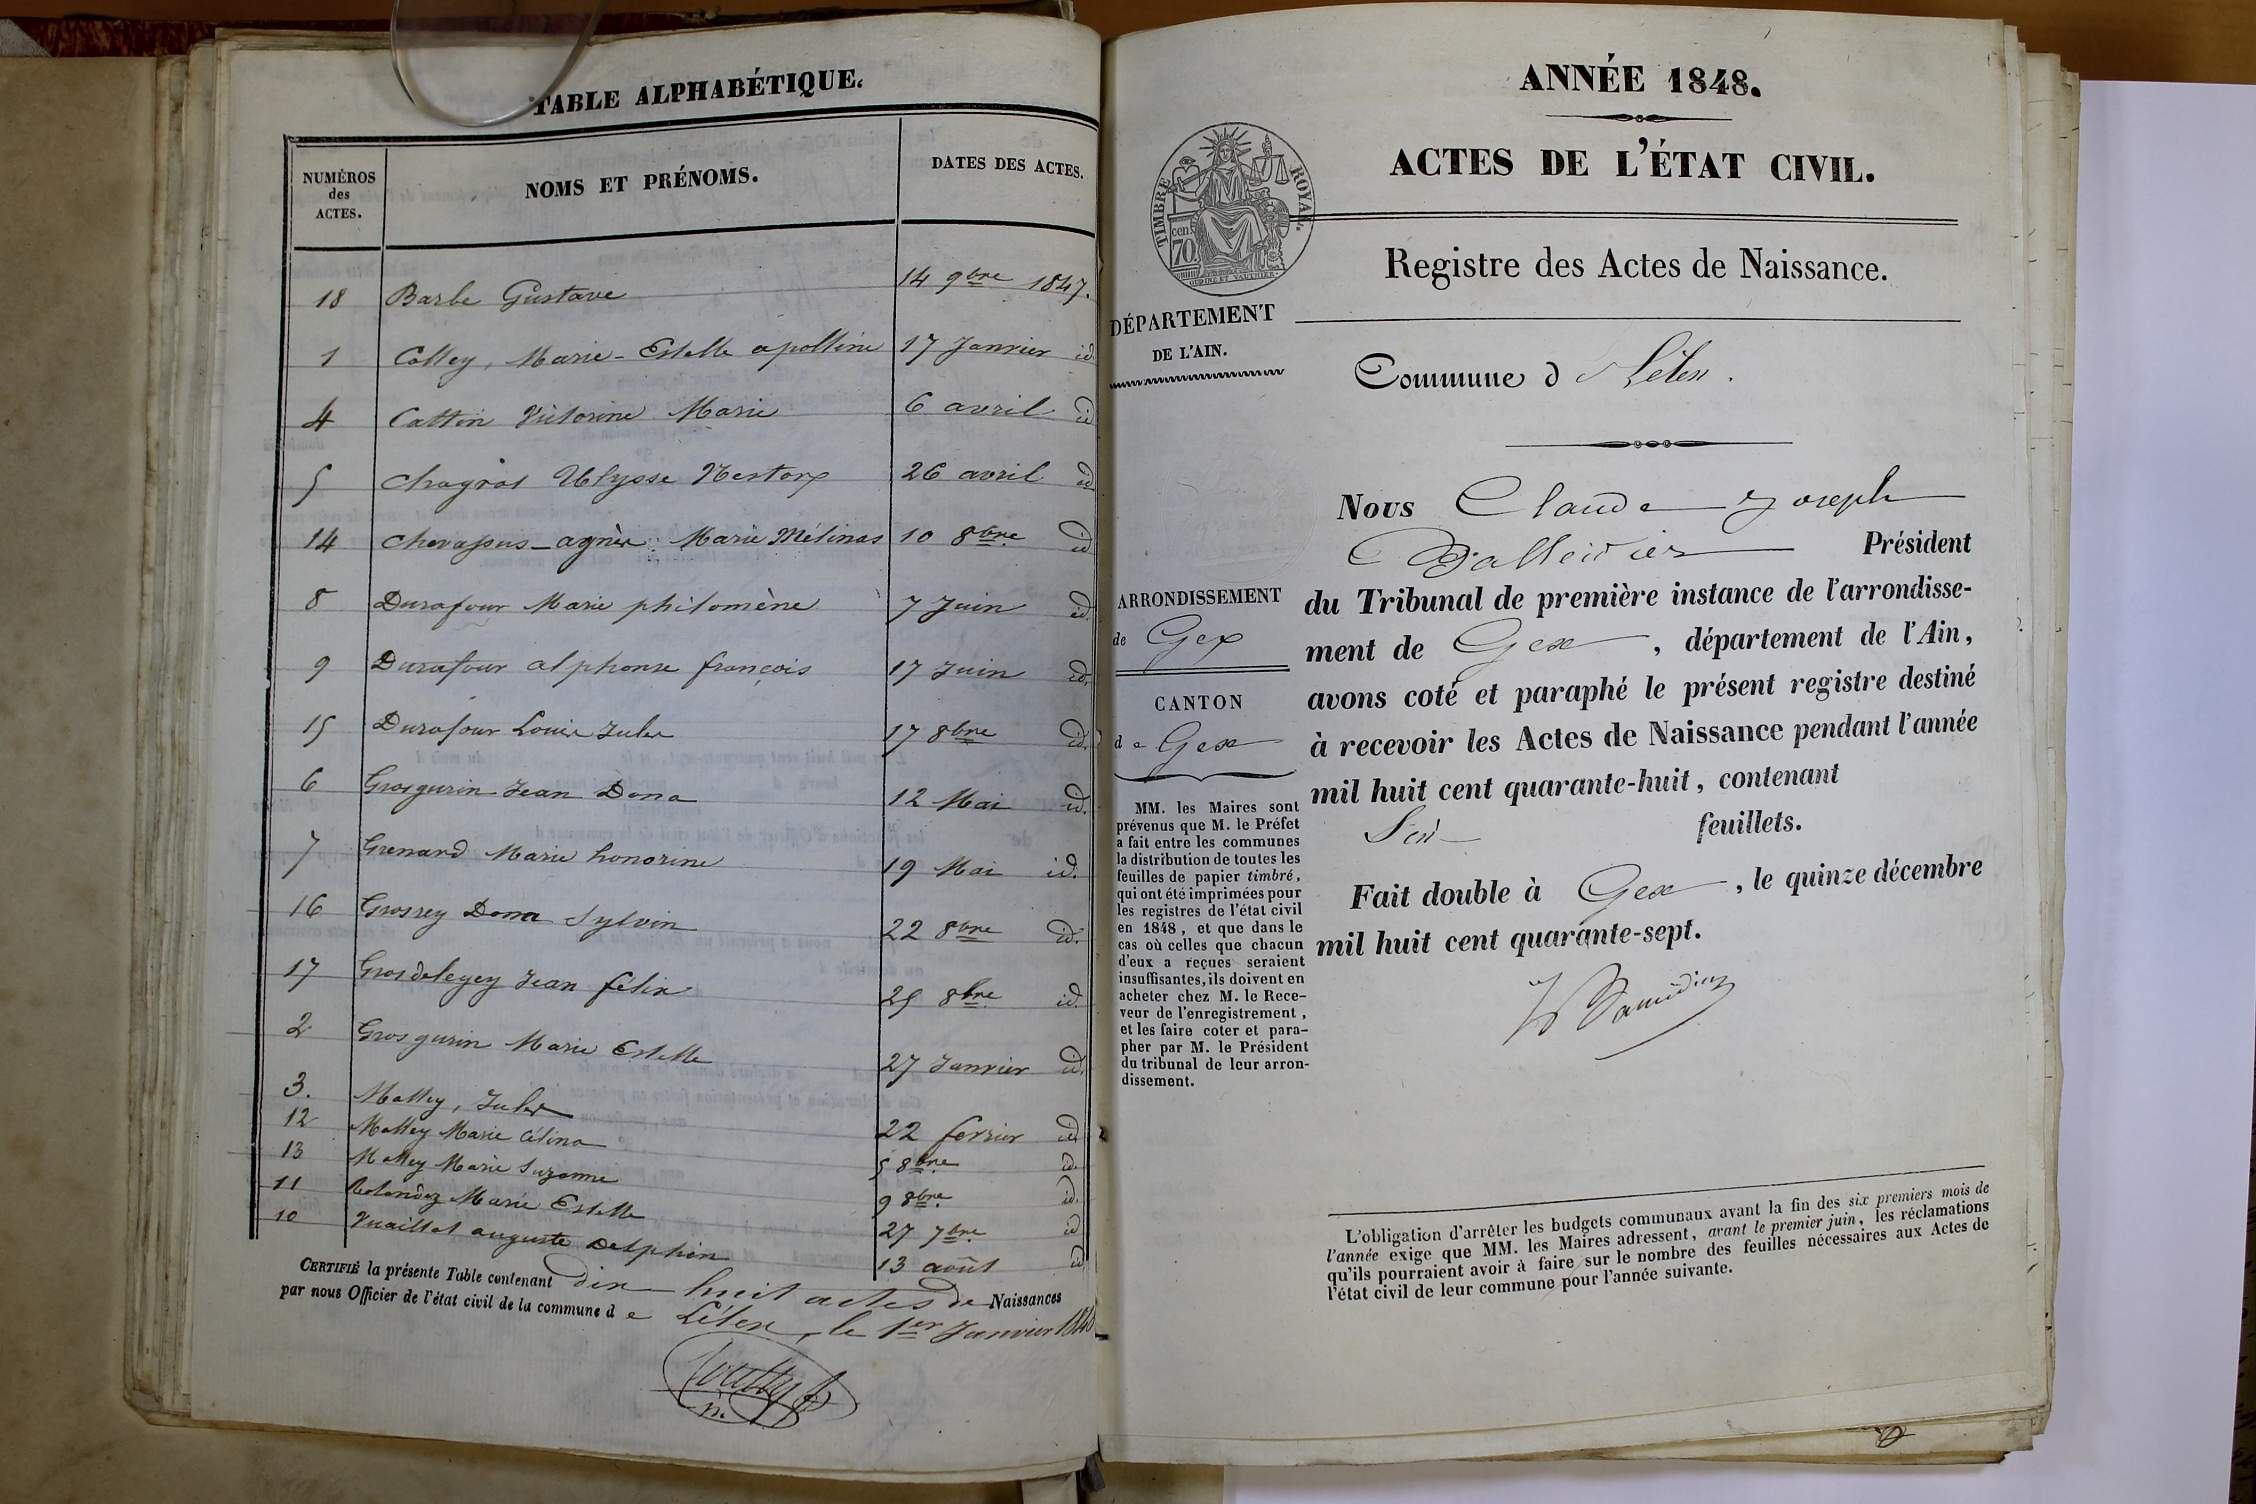 TABLE ALPHABÉTIQUE.
NUMÉROS des ACTES.
NOMS ET PRÉNOMS.
DATES DES ACTES.
18 Barbe Gustave 14 9bre 1847.
1 Colley, Marie-Estelle apolline 17 Janvier id.
4 Cattin Victorine Marie 6 avril id
5 Chagrot Ulysse Nestor 26 avril id
14 Chevassus-agnès Marie Mélinas 10 8bre id
8 Durafour Marie philomène 7 Juin id.
9 Durafour alphonse françois 17 Juin id.
15 Durafour Louis Jules 17 8bre id.
6 Grosgurin Jean Dona 12 Mai id.
7 Grenard Marie honorine 19 Mai id.
16 Grosrey Dona Sylvin 22 8bre id.
17 Grosdelegey Jean félix 25 8bre id.
2 Grosgurin Marie Estelle 27 Janvier id.
3. Molley, Jules 22 fevrier id
12 Molley Marie Célina 5 8bre id.
13 Molley Marie Suzanne 9 8bre. id.
11 Rolandez Marie Estelle 27 7bre id
10 Vuaillat auguste Delphin 13 août id
CERTIFIÉ la présente Table contenant dix-huit actes de Naissances
par nous Officier de l'état civil de la commune de Lélex, le 1er Janvier 1848
ANNÉE 1848.
ACTES DE L'ÉTAT CIVIL.
TIMBRE ROYAL.
70 cen.
Registre des Actes de Naissance.
DÉPARTEMENT
DE L'AIN.
Commune d Lélex.
ARRONDISSEMENT
de Gex
CANTON
de Gex
MM. les Maires sont
prévenus que M. le Préfet
a fait entre les communes
la distribution de toutes les
feuilles de papier timbré,
qui ont été imprimées pour
les registres de l'état civil
en 1848, et que dans le
cas où celles que chacun
d'eux a reçues seraient
insuffisantes, ils doivent en
acheter chez M. le Rece-
veur de l'enregistrement,
et les faire coter et para-
pher par M. le Président
du tribunal de leur arron-
dissement.
Nous Claude Joseph
Président
du Tribunal de première instance de l'arrondisse-
ment de Gex, département de l'Ain,
avons coté et paraphé le présent registre destiné
à recevoir les Actes de Naissance pendant l'année
mil huit cent quarante-huit, contenant
feuillets.
Fait double à Gex, le quinze décembre
mil huit cent quarante-sept.
L'obligation d'arrêter les budgets communaux avant la fin des six premiers mois de
l'année exige que MM. les Maires adressent, avant le premier juin, les réclamations
qu'ils pourraient avoir à faire sur le nombre des feuilles nécessaires aux Actes de
l'état civil de leur commune pour l'année suivante.